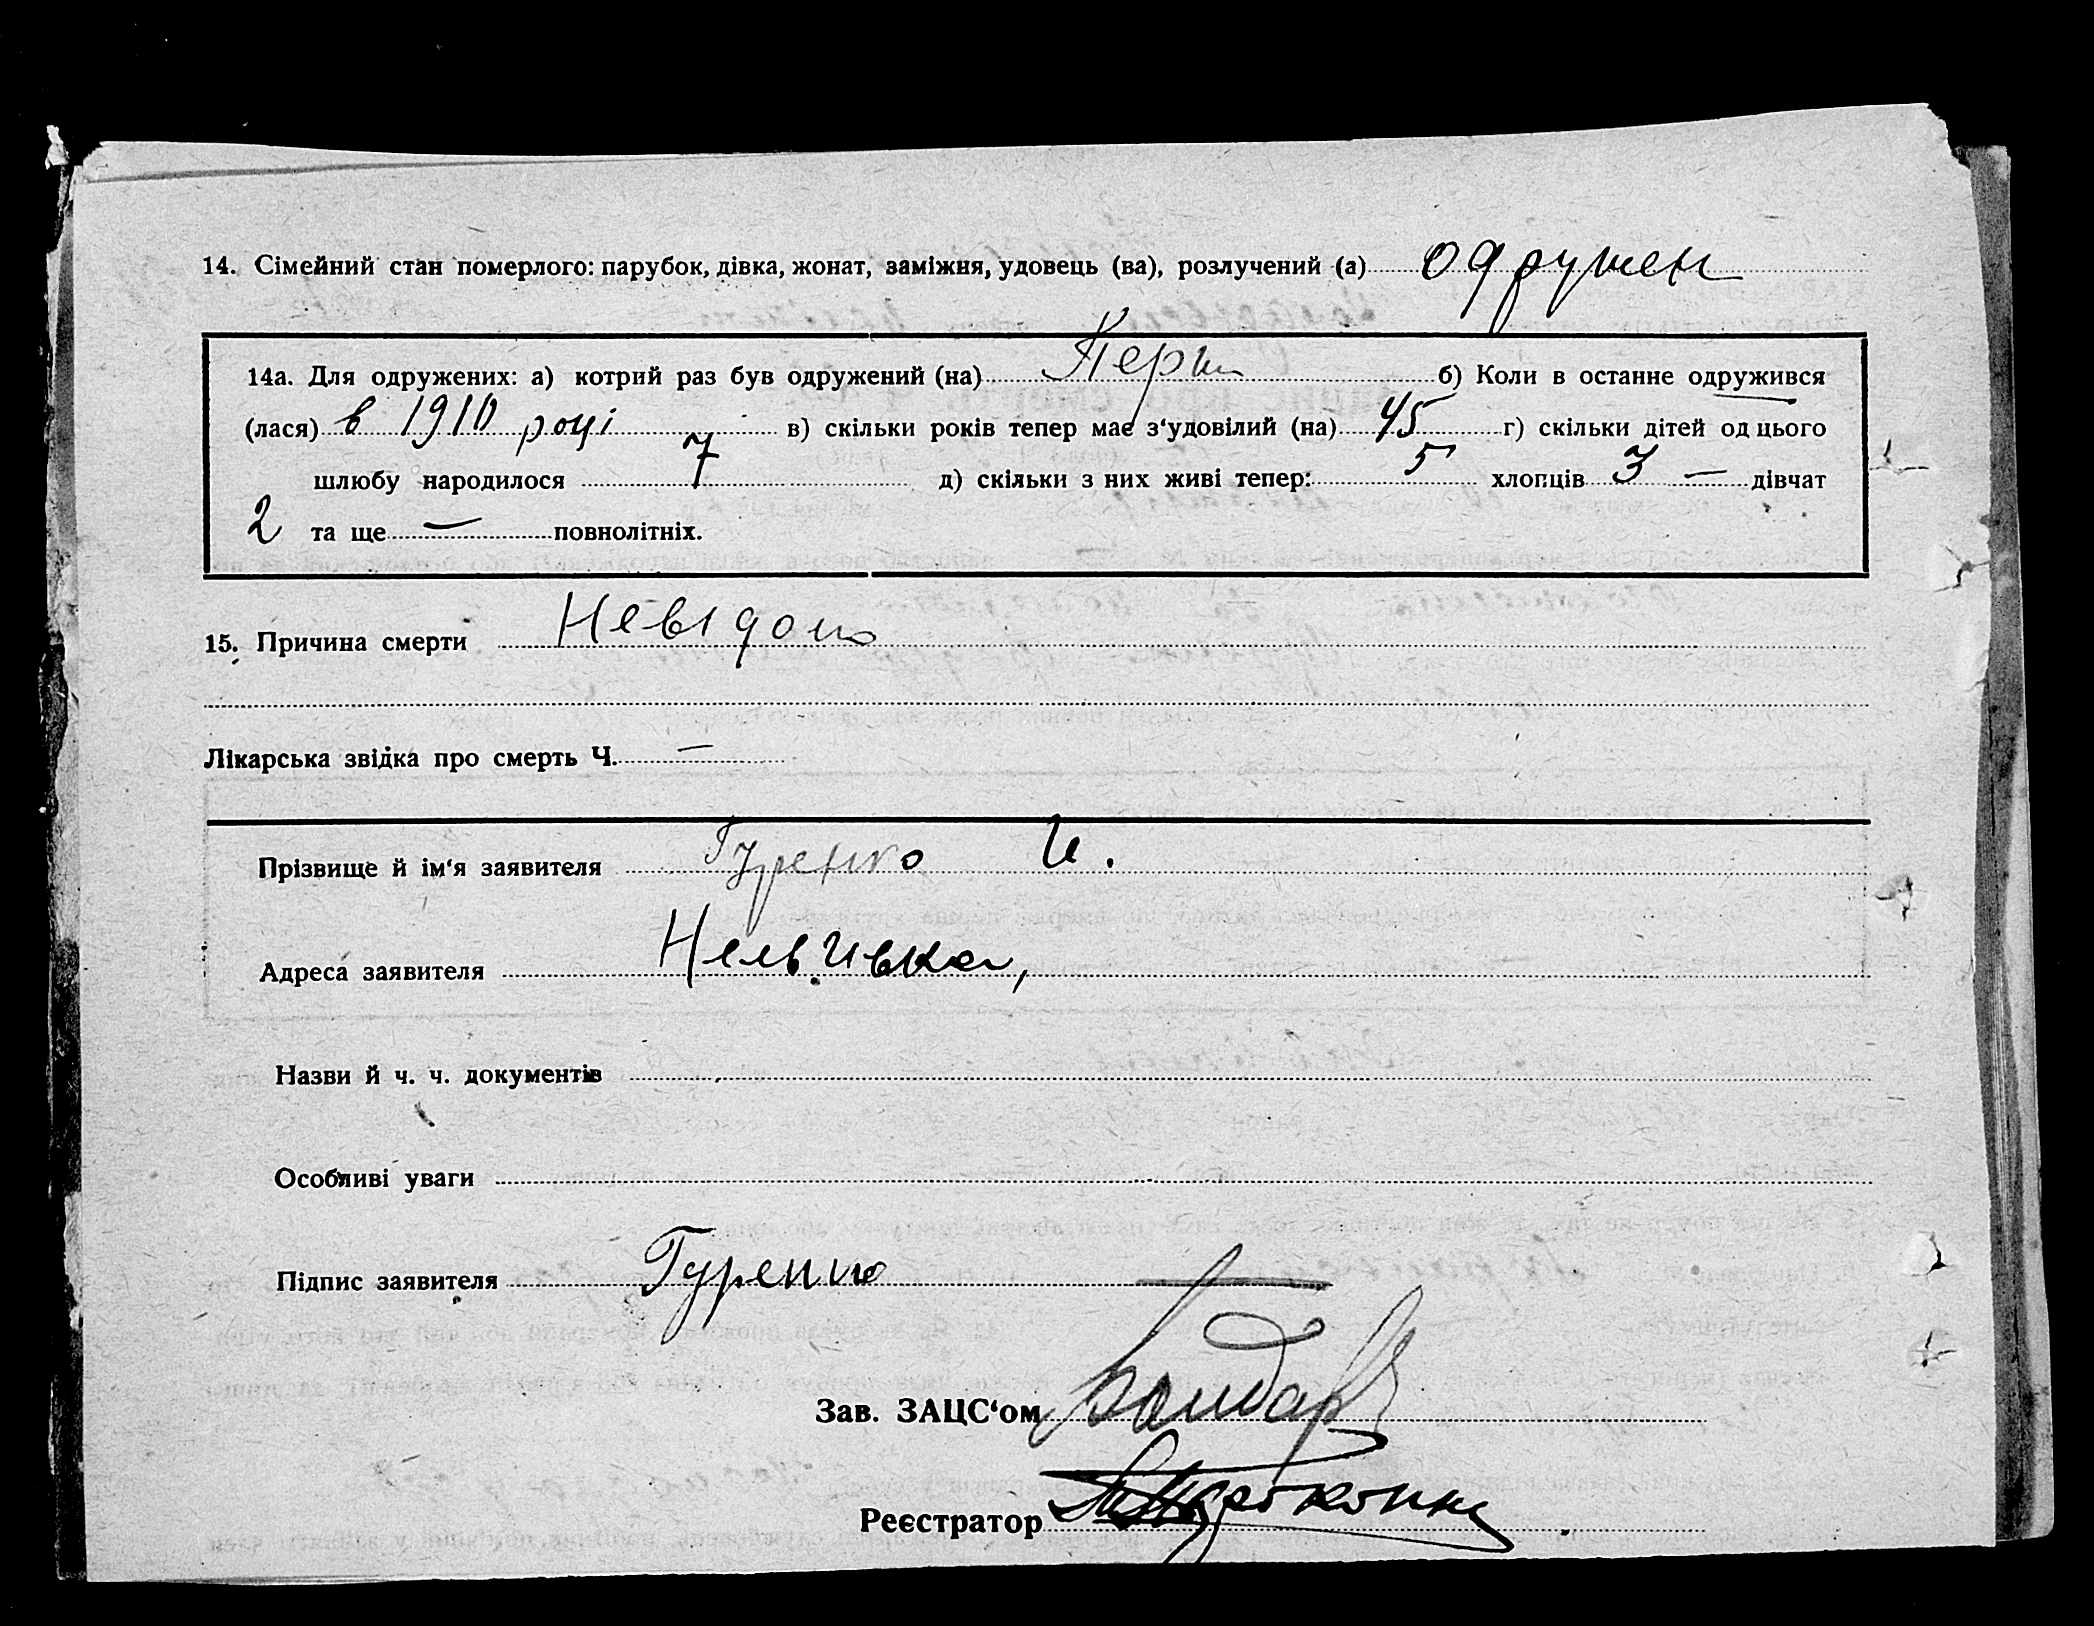 14. Сімейний стан померлого: парубок, дівка, жонат, заміжня, удовець (ва), розлучений (а) одружен
14а. Для одружених: а) котрий раз був одружений (на) Перш б) Коли в останне одружився
(лася) в 1910 році в) скільки років тепер має з‘удовілий (на) 45 г) скільки дітей од цього
шлюбу народилося 7 д) скільки з них живі тепер: 5 хлопців 3 — дівчат
2 та ще — повнолітніх.
15. Причина смерти Невідомо
Лікарська звідка про смерть Ч. —
Прізвище й ім‘я заявителя Гуренко И.
Адреса заявителя
Назви й ч. ч. документів
Особливі уваги
Підпис заявителя Гуренко
Зав. ЗАЦС‘ом Бондар
Реєстратор